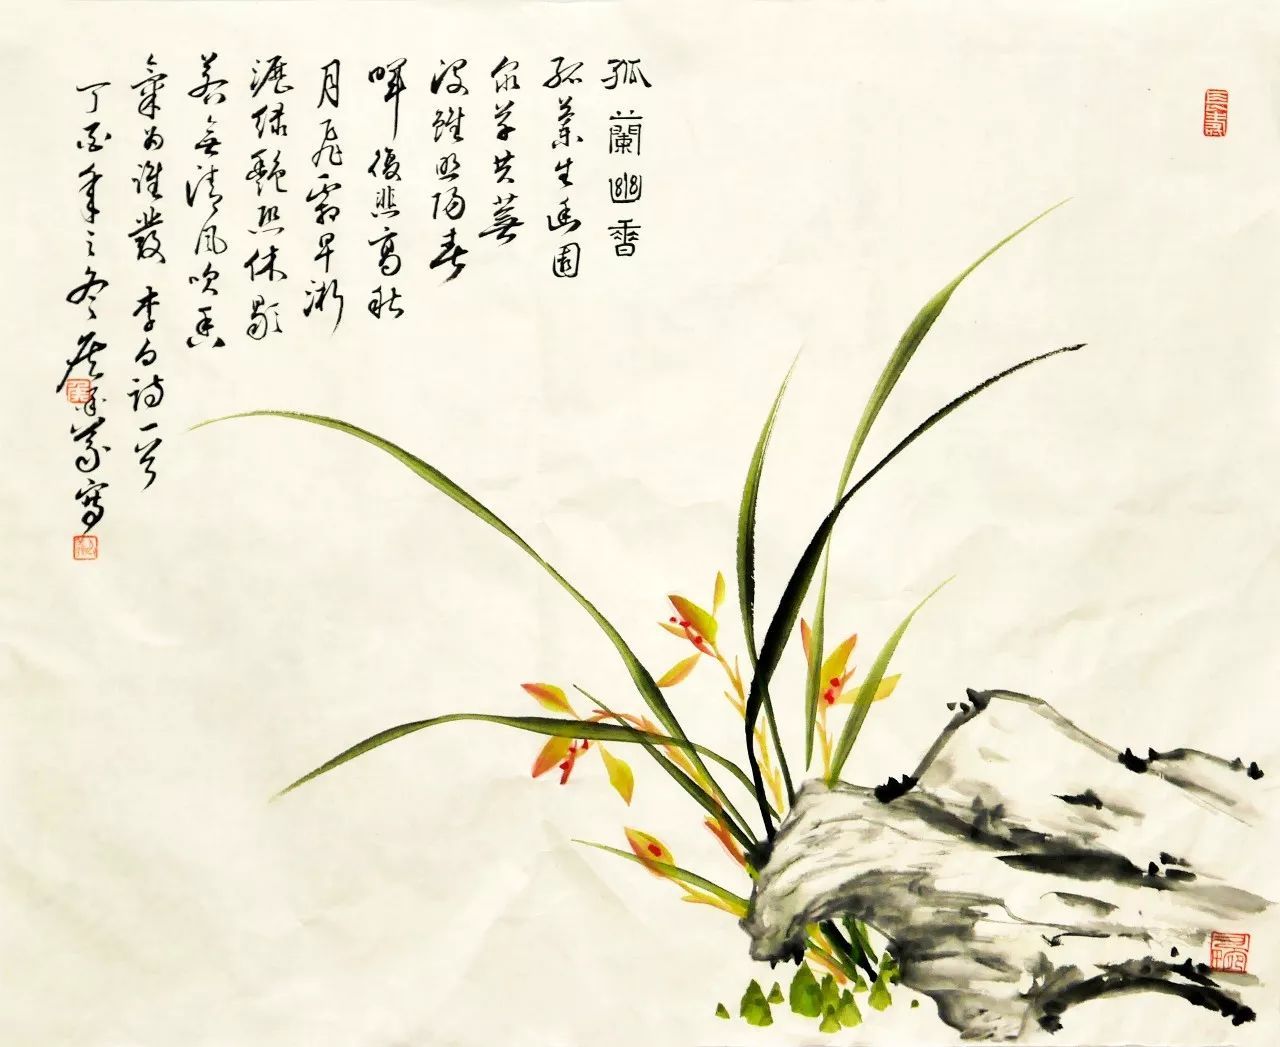 孤蘭幽香
孤蘭生幽園
衆草共蕪
沒雖照陽春
暉復悲高秋
月飛霜早淅
瀝綠艷恐休歇
若無清風吹香
氣為誰發 李白詩一首
丁酉年之冬 寫